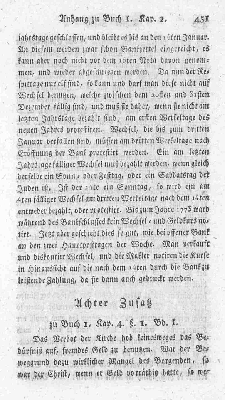 Anhang zu Buch 1. Kap. 2. 451
jahrstage geschlossen, und bleibt es bis an den 14ten Januar.
An diesem werden zwar schon Bankzettel eingereicht, es
kann aber noch nicht vor dem 16ten Notiz davon genom-
men, und wieder abgewiesen werden. Da nun der Re-
spittage nur sind, so darf man nicht auf
Wechsel bestehen, welche zwischen dem und
December fällig sind, und muß dafür, wenn sie nicht am
letzten Jahrstage bezahlt sind, am ersten Werkestage des
neuen Jahrs protestiren. Wechsel, die bis zum dritten
Januar verfallen sind, müssen am dritten Werkestage nach
Eröfnung der Bank protestirt werden. Ein am letzten
Jahrstage fälliger Wechsel muß bezahlt werden, wenn gleich
derselbe ein Sonn- oder Festtag, oder ein Sabbatstag der
Juden ist. Ist der ein Sonntag, so wird ein am
fälliger Wechsel am dritten Werkestage nach dem
entweder bezahlt, oder protestirt. Bis zum Jahre 1773 ward
während des Bankschlusses kein Wechsel- und Geldkurs no-
tirt. Jetzt aber geschieht dies so gut, wie bei offener Bank
an den zwei Hauptposttagen der Woche. Man verkauft
und diskontirt Wechsel, und die Makler notiren die Kurse
in Hinsicht auf die nach dem 14ten durch die Bank zu
leistende Zahlung, da sie dann auch geschlossen wird.
Achter Zusatz
zu Buch 1. Kap. 4. §. 1. Bd. 1.
Das Verbot der Kirche hob keinesweges das Be-
dürfniß auf, fremdes Geld zu benutzen. War der Be-
weggrund dazu wirklicher Mangel des Borgenden, so
war der Christ, wenn er Geld vorräthig hatte, so we-